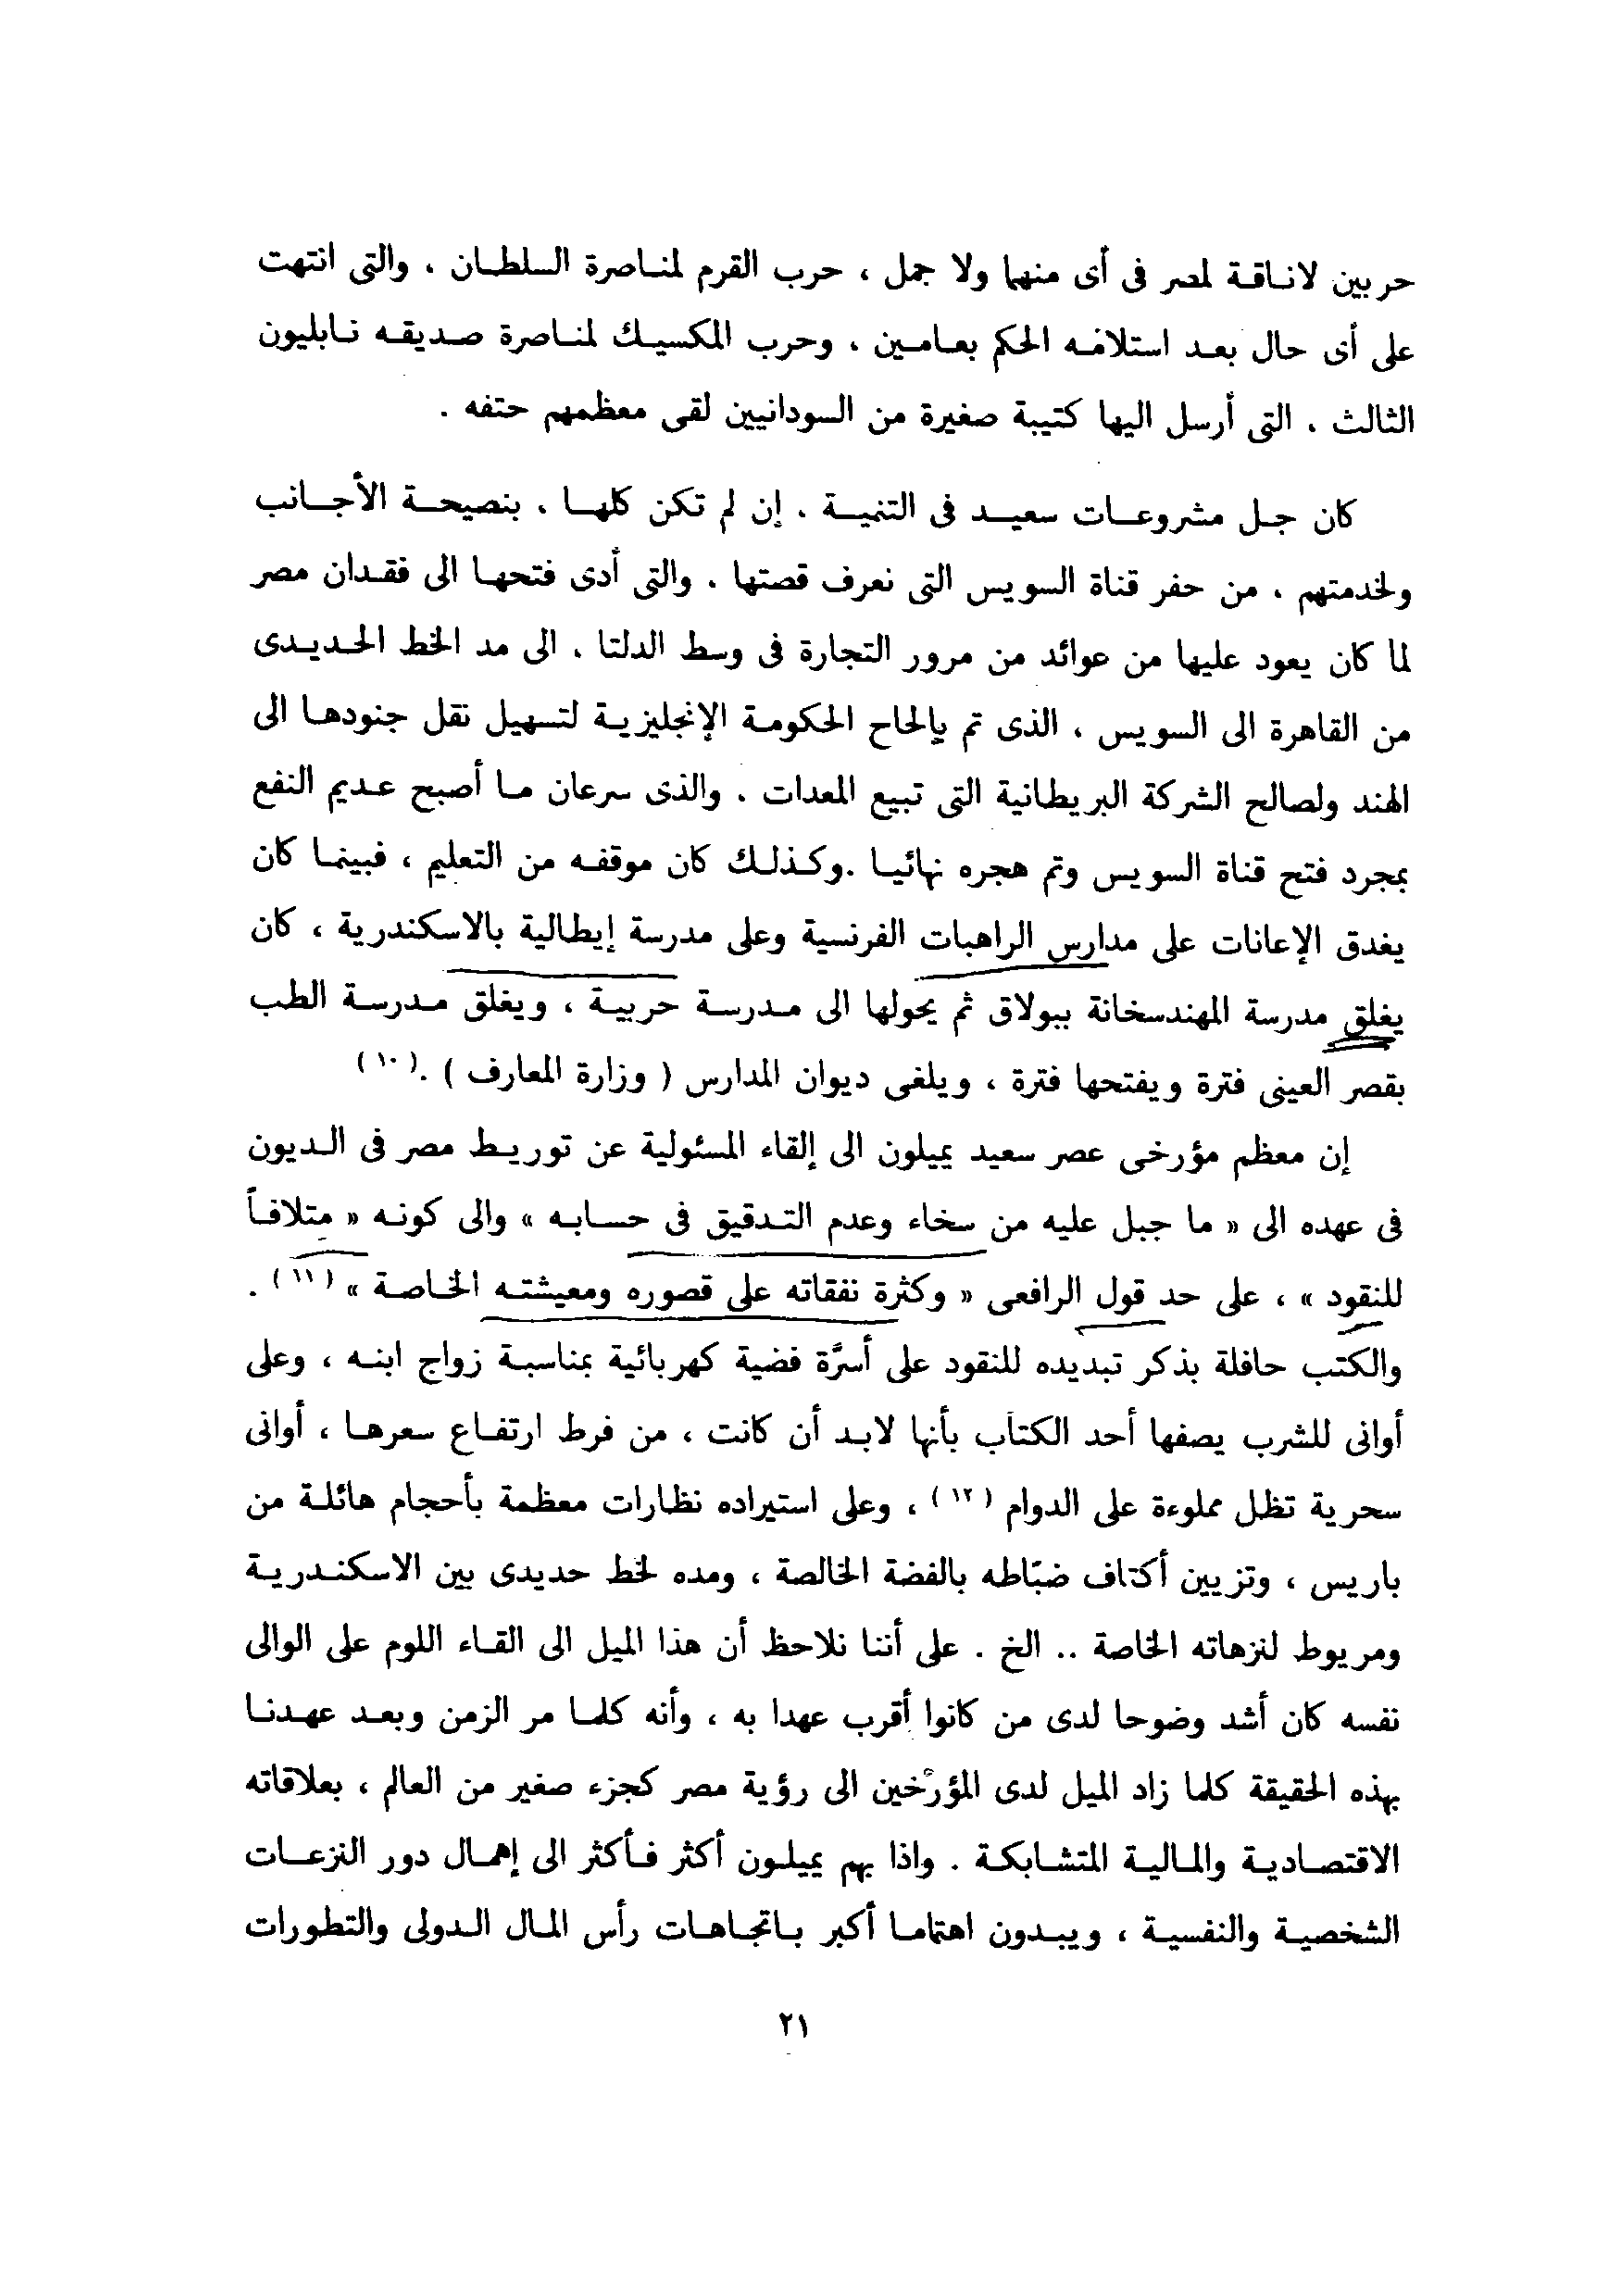 حربين لاناقة لمصر فى أى منهما ولا جمل ، حرب القرم لمناصرة السلطان ، والتى انتهت
على أى حال بعد استلامه الحكم بعامين ، وحرب المكسيك لمناصرة صديقه نابليون
الثالث ، التى أرسل اليها كتيبة صغيرة من السودانيين لقى معظمهم حتفه .
كان جل مشروعات سعيد فى التنمية ، إن لم تكن كلها ، بنصيحة الأجانب
ولخدمتهم ، من حفر قناة السويس التى نعرف قصتها ، والتى أدى فتحها الى فقدان مصر
لما كان يعود عليها من عوائد من مرور التجارة فى وسط الدلتا ، الى مد الخط الحديدى
من القاهرة الى السويس ، الذى تم بإلحاح الحكومة الإنجليزية لتسهيل نقل جنودها الى
الهند ولصالح الشركة البريطانية التى تبيع المعدات ، والذى سرعان ما أصبح عديم النفع
بمجرد فتح قناة السويس وتم هجره نهائيا .وكذلك كان موقفه من التعليم ، فبينما كان
يغدق الإعانات على مدارس الراهبات الفرنسية وعلى مدرسة إيطالية بالاسكندرية ، كان
يغلق مدرسة المهندسخانة ببولاق ثم يحولها الى مدرسة حربية ، ويغلق مدرسة الطب
بقصر العينى فترة ويفتحها فترة ، ويلغى ديوان المدارس ( وزارة المعارف ) .(١٠)
إن معظم مؤرخى عصر سعيد يميلون الى إلقاء المسئولية عن توريط مصر فى الديون
فى عهده الى « ما جبل عليه من سخاء وعدم التدقيق فى حسابه » والى كونه « متلافاً
للنقود » ، على حد قول الرافعى « وكثرة نفقاته على قصوره ومعيشته الخاصة » (١١) .
والكتب حافلة بذكر تبديده للنقود على أسرَّة فضية كهربائية بمناسبة زواج ابنه ، وعلى
أوانى للشرب يصفها أحد الكتاب بأنها لابد أن كانت ، من فرط ارتفاع سعرها ، أوانى
سحرية تظل مملوءة على الدوام (١٢) ، وعلى استيراده نظارات معظمة بأحجام هائلة من
باريس ، وتزيين أكتاف ضبّاطه بالفضة الخالصة ، ومده لخط حديدى بين الاسكندرية
ومريوط لنزهاته الخاصة .. الخ . على أننا نلاحظ أن هذا الميل الى القاء اللوم على الوالى
نفسه كان أشد وضوحا لدى من كانوا أقرب عهدا به ، وأنه كلما مر الزمن وبعد عهدنا
بهذه الحقيقة كلما زاد الميل لدى المؤرّخين الى رؤية مصر كجزء صغير من العالم ، بعلاقاته
الاقتصادية والمالية المتشابكة . واذا بهم يميلون أكثر فأكثر الى إهمال دور النزعات
الشخصية والنفسية ، ويبدون اهتماما أكبر باتجاهات رأس المال الدولى والتطورات
٢١